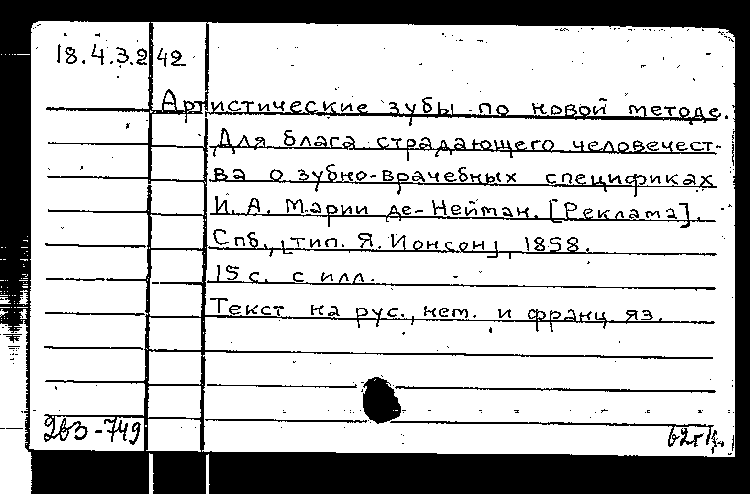 18.4.3.242
Артистические зубы по новой методе.
Для блага страдающего человечест-
ва о зубно-врачебных спецификах
И. А. Марии де-Нейман. [Реклама].
Спб., [тип. Я. Ионсон], 1858.
15 с. с илл.
Текст на рус., нем. и франц. яз.
2вз-749